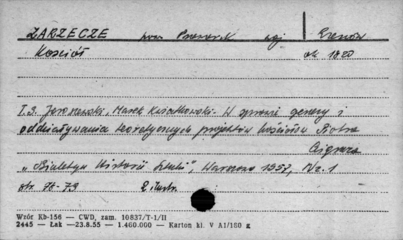 ZARZECZE pow. Przeworsk woj. Rzeszów
Kościół ok. 1820
T.S. Jaroszewski, Marek Kwiatkowski. W sprawie genezy i
oddziaływania teoretycznych projektów kościoła Piotra
Aignera
„Biuletyn Historii Sztuki", Warszawa 1957, Nr. 1
str. 71-79 2 ilustr.
Wzór Kb-156 — CWD, zam. 10837/T-1/II
2445 — Łak — 23.8.55 — 1.460.000 — Karton kl. V A1/160 g